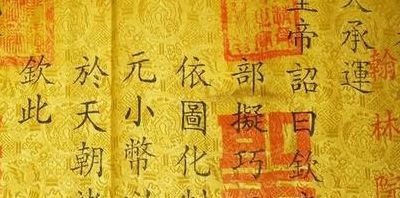 翰林院
天承運
皇帝詔曰欽
部擬巧
依圖化
元小幣
於天朝
欽此